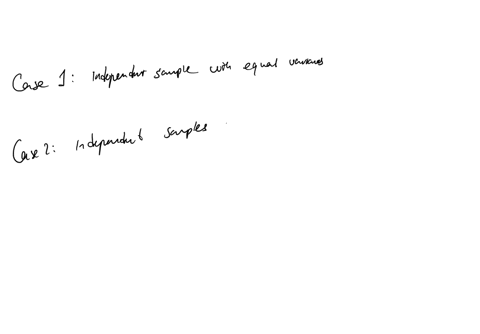 Case 1: Independent sample with equal variances
Case 2: Independent samples